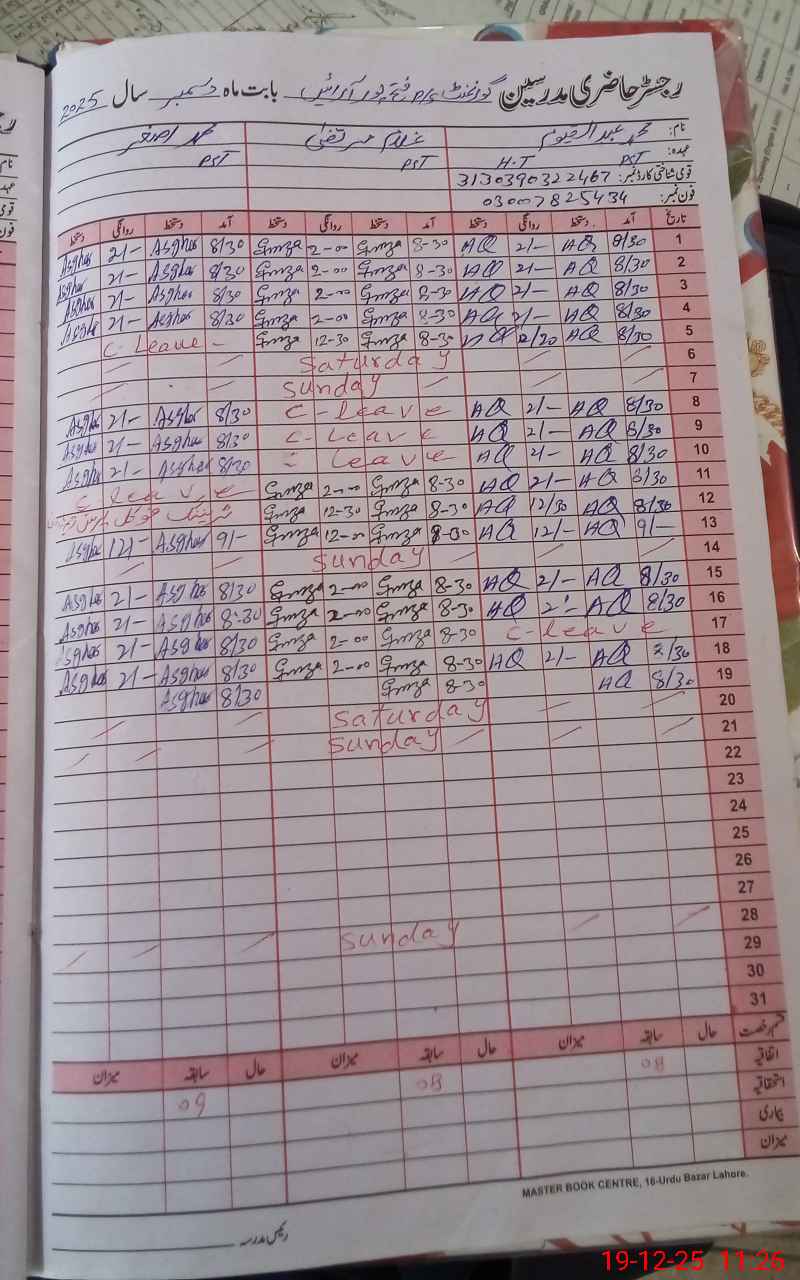 رجسٹر حاضری مدرسین گورنمنٹ P/S فتح پور آرائیں بابت ماہ دسمبر سال 2025
نام: محمد عبدالقیوم غلام مرتضیٰ محمد اصغر
عہدہ: PST H.T PST PST
قومی شناختی کارڈ نمبر: 3130390322467
فون نمبر: 03007825434
تاریخ آمد دستخط روانگی دستخط آمد دستخط روانگی دستخط آمد دستخط روانگی دستخط
1 8/30 AQ 2/- AQ 8-30 2-00 8/30 Asghar 2/- Asghar
2 8/30 AQ 2/- AQ 8-30 2-00 8/30 Asghar 2/- Asghar
3 8/30 AQ 2/- AQ 8-30 2-00 8/30 Asghar 2/- Asghar
4 8/30 AQ 2/- AQ 8-30 2-00 8/30 Asghar 2/- Asghar
5 8/30 AQ AQ 8-30 12-30 C-Leave
6 Saturday
7 Sunday
8 8/30 AQ 2/- AQ C-leave 8/30 Asghar 2/- Asghar
9 8/30 AQ 2/- AQ C-leave 8/30 Asghar 2/- Asghar
10 8/30 AQ 2/- AQ leave 8/30 Asghar 2/- Asghar
11 8/30 AQ 2/- AQ 8-30 2-00 C-leave
12 8/30 AQ 12/30 AQ 8-30 12-30
13 9/- AQ 12/- AQ 8-30 12-00 9/- Asghar 12/- Asghar
14 Sunday
15 8/30 AQ 2/- AQ 8-30 2-00 8/30 Asghar 2/- Asghar
16 8/30 AQ 2/- AQ 8-30 2-00 8-30 Asghar 2/- Asghar
17 C-leave 8-30 2-00 8/30 Asghar 2/- Asghar
18 AQ 2/- AQ 8-30 2-00 8/30 Asghar 2/- Asghar
19 8/30 AQ 8-30 8/30 Asghar
20 Saturday
21 Sunday
22
23
24
25
26
27
28 Sunday
29
30
31
قسم رخصت حال سابقہ میزان حال سابقہ میزان حال سابقہ میزان
اتفاقیہ 08 08 09
استحقاقیہ
بیماری
میزان
MASTER BOOK CENTRE, 16-Urdu Bazar Lahore.
رئیس مدرسہ
19-12-25 11:26